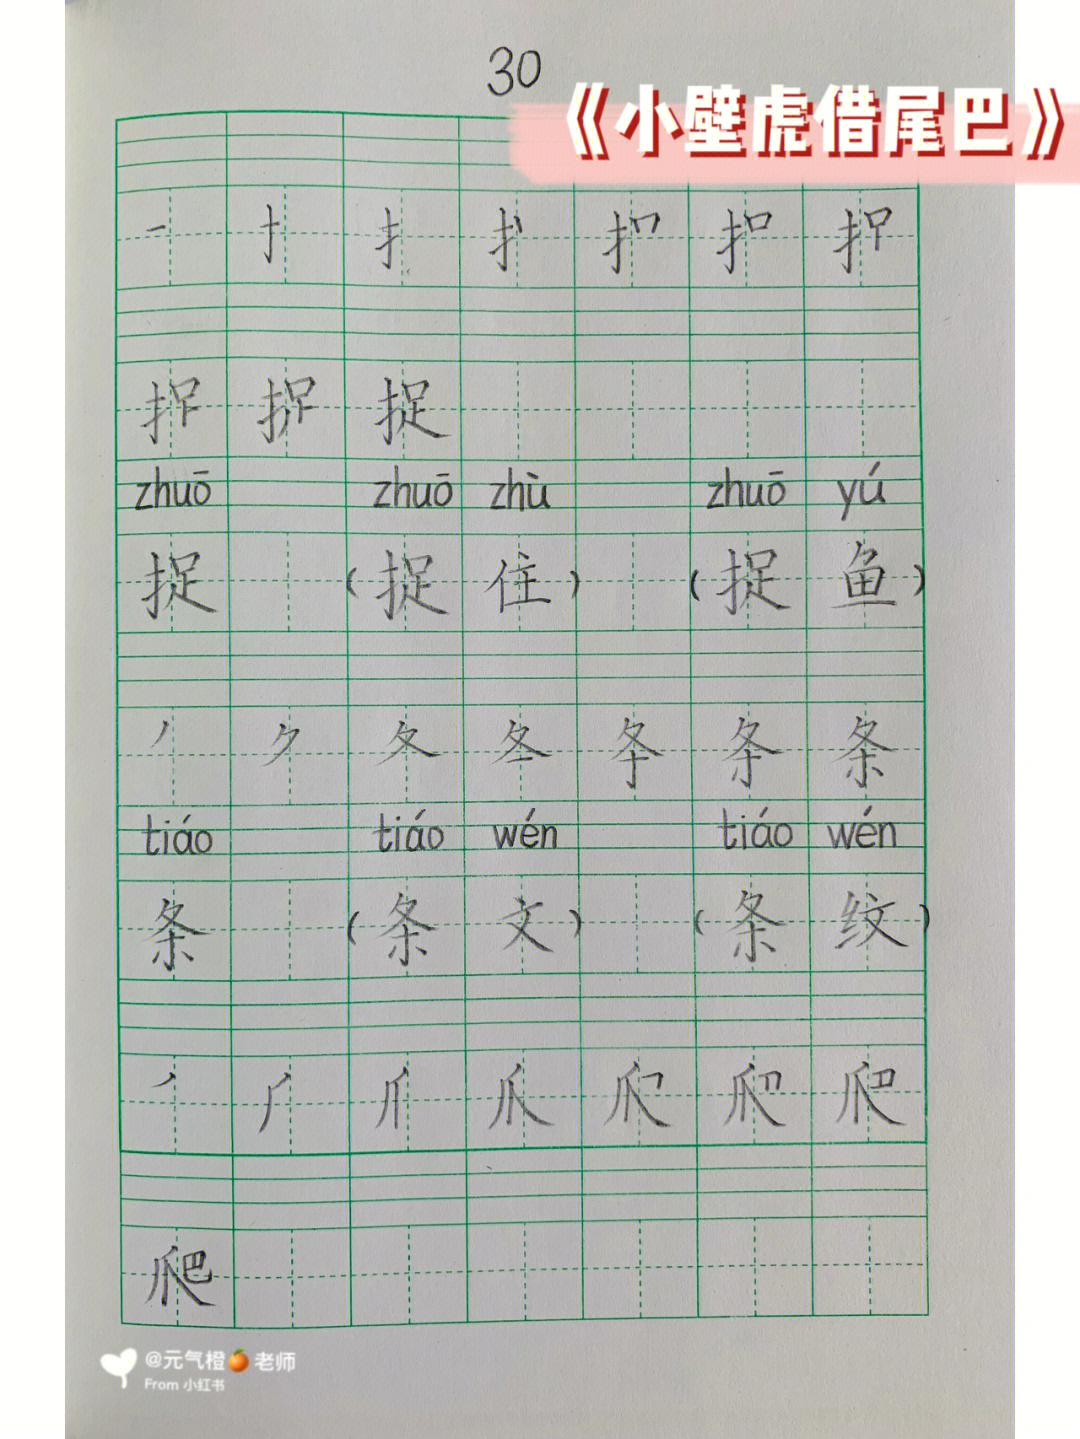 30
《小壁虎借尾巴》
捉
zhuō zhuō zhù zhuō yú
捉 (捉 住) (捉 鱼)
丿 夕 夂 冬 条 条
tiáo tiáo wén tiáo wén
条 (条 文) (条 纹)
丿 厂 爪 爬
爬
@元气橙🍊老师
From 小红书